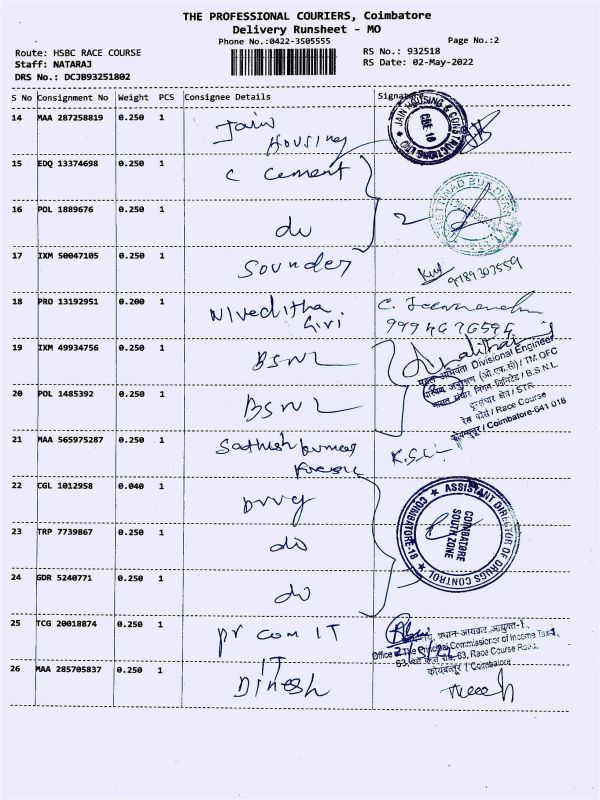 THE PROFESSIONAL COURIERS, Coimbatore
Delivery Runsheet - MO
Phone No.:0422-3505555
Page No.:2
Route: HSBC RACE COURSE
RS No.: 932518
Staff: NATARAJ
RS Date: 02-May-2022
DRS No.: DCJB93251802
S No Consignment No Weight PCS Consignee Details Signature
14 MAA 287258819 0.250 1 Jain Housing
JAIN HOUSING & CONSTRUCTIONS LTD
CBE-18
15 EDQ 13374698 0.250 1 C Cement
16 POL 1889676 0.250 1 do
2
17 IXM 50047105 0.250 1 Sounder
9789303559
18 PRO 13192951 0.200 1 Niveditha Giri
19 IXM 49934756 0.250 1 BSNL
Divisional Engineer
TM OFC
B.S.N.L.
दूरसंचार क्षेत्र / STR
रेस कोर्स / Race Course
कोयम्बत्तूर / Coimbatore-641 018
20 POL 1485392 0.250 1 BSNL
21 MAA 565975287 0.250 1 Sathish kumar
22 CGL 1012958 0.040 1 Drug
ASSISTANT DIRECTOR OF DRUGS CONTROL
COIMBATORE-18
COIMBATORE
SOUTH ZONE
23 TRP 7739867 0.250 1 do
24 GDR 5240771 0.250 1 do
25 TCG 20018874 0.250 1 pr com IT
प्रधान आयकर आयुक्त-1
Office of The Principal Commissioner of Income Tax-1,
63, रेस कोर्स रोड, 63, Race Course Road,
कोयंबत्तूर / Coimbatore
26 MAA 285705837 0.250 1 IT Dinesh